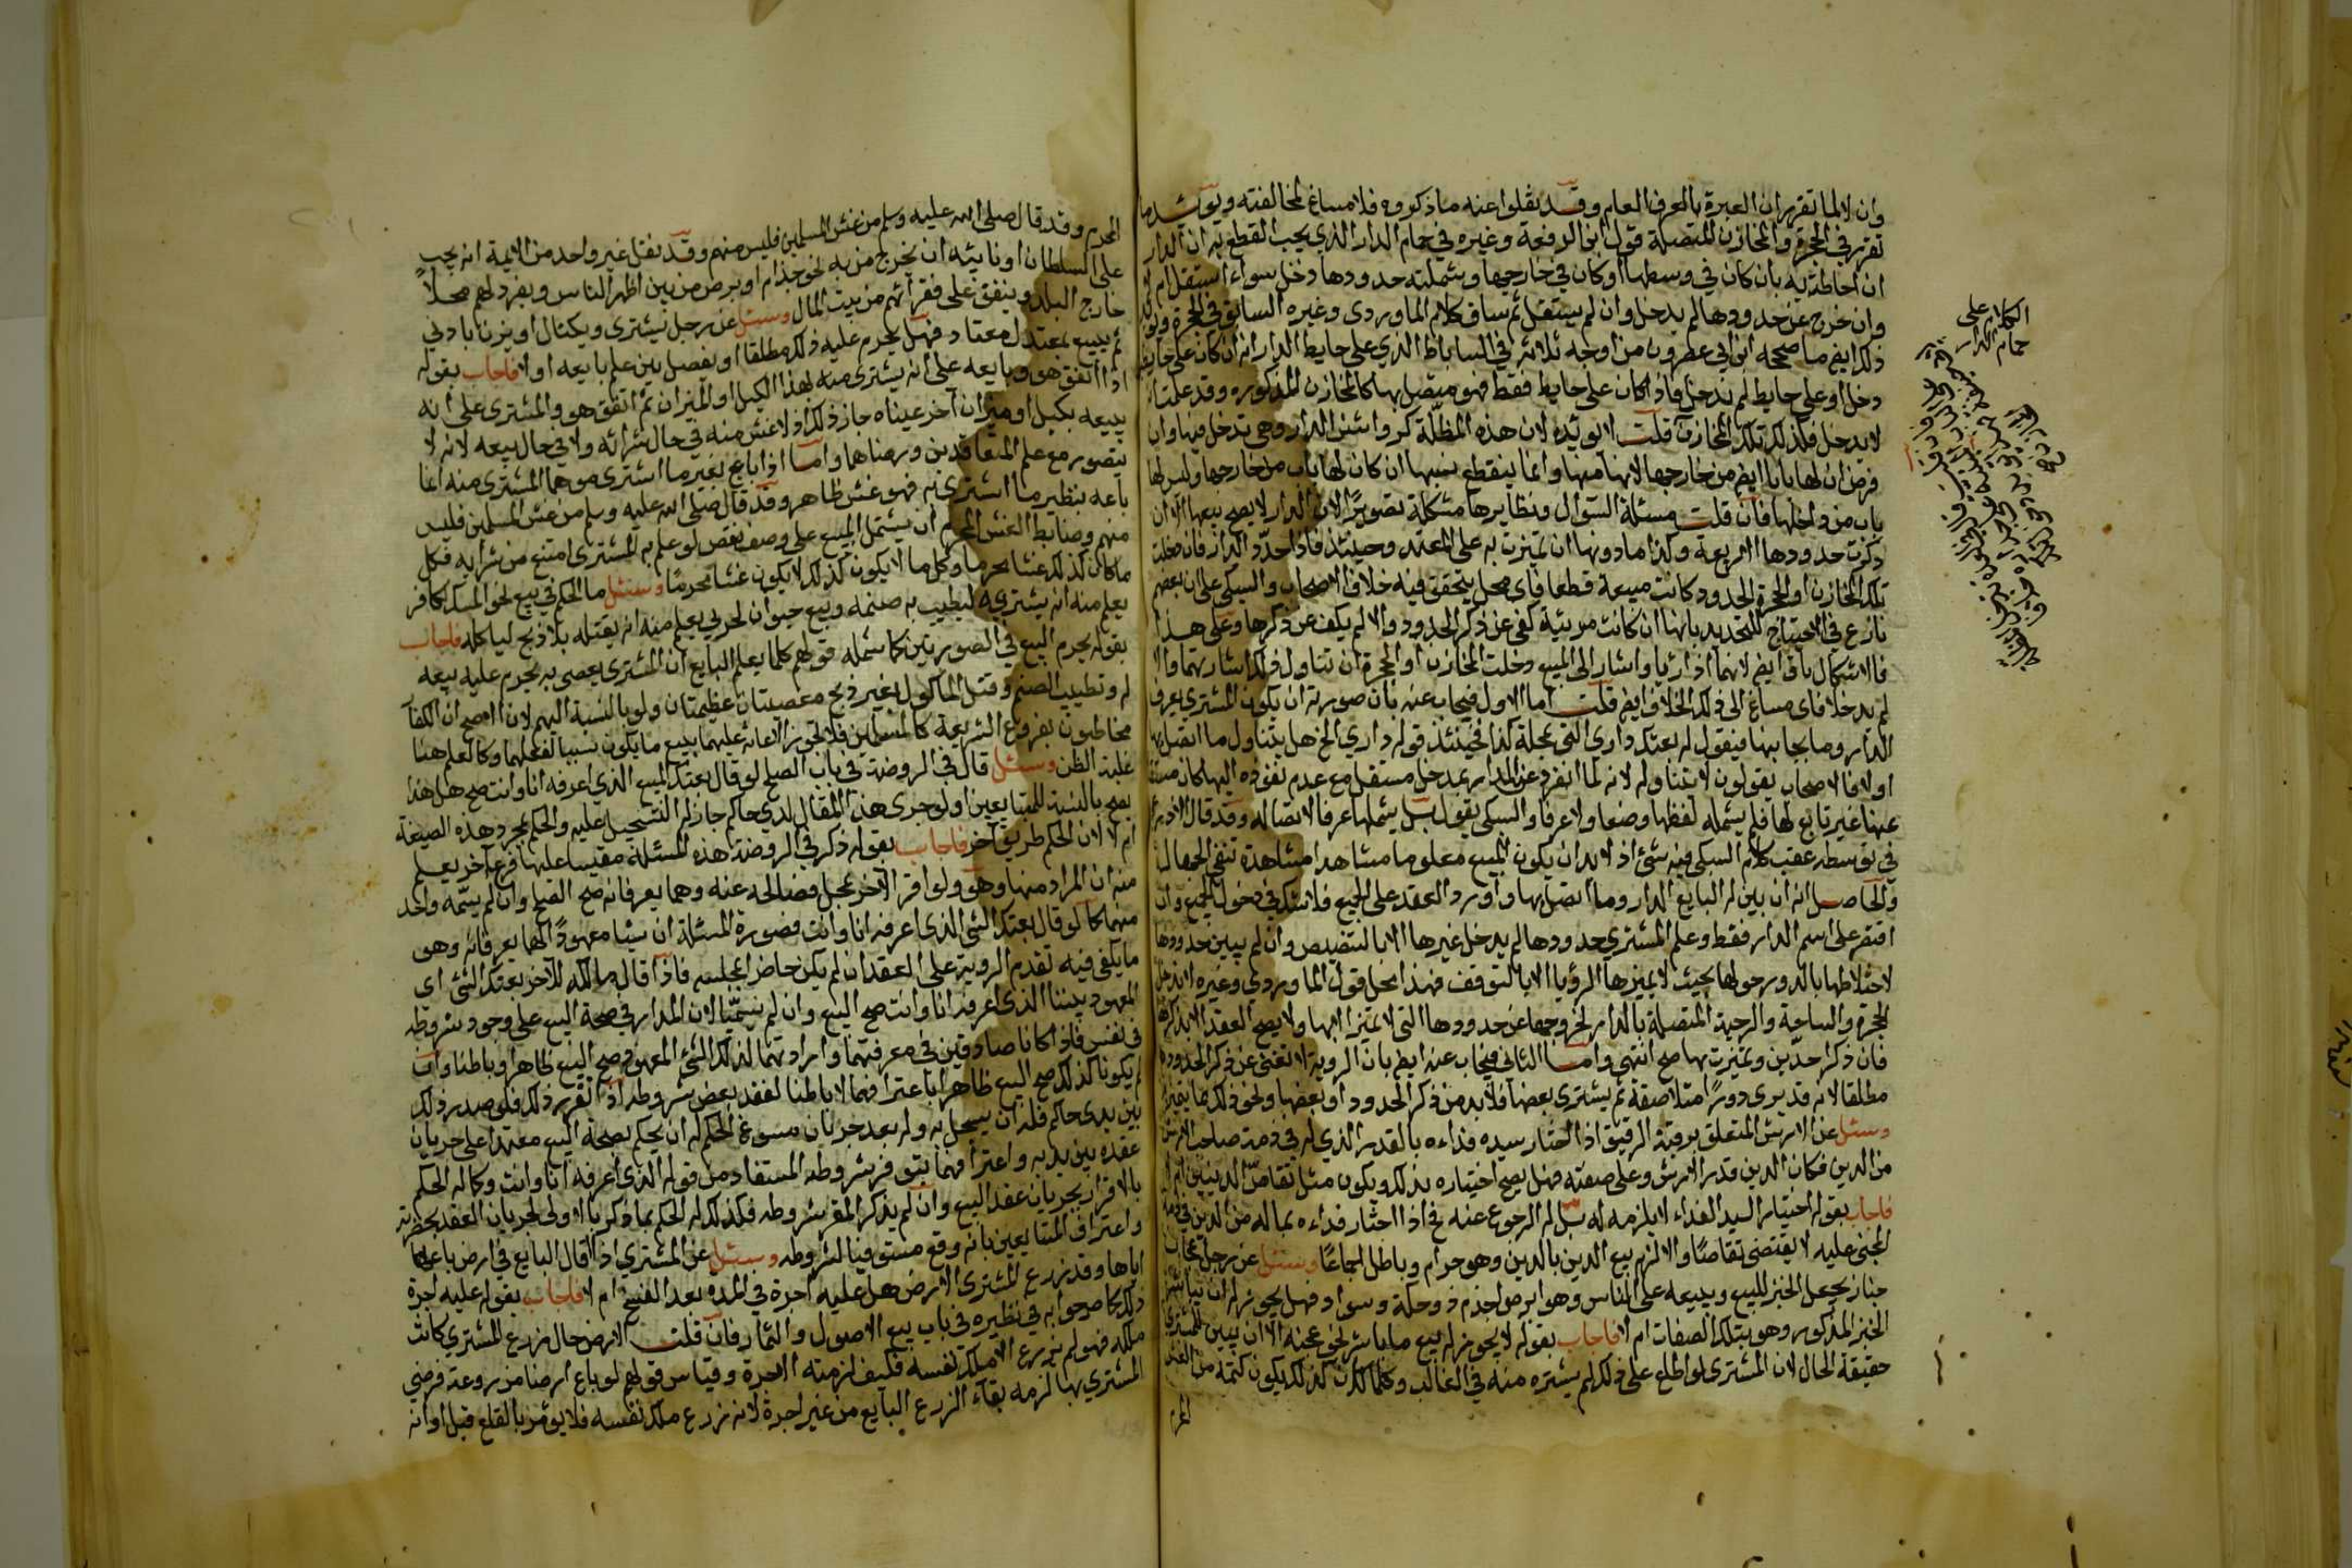 وان لا لما تقرر ان العبرة بالعرف العام وقد نقلوا عنه ما ذكروه فلا مساغ لمخالفته ويؤيد ما
تقرر في الحجرة والمخازن المتصلة قول ابن الرفعة وغيره في حمام الدار الذي يجب القطع به ان الدار
ان احاطت به بان كان في وسطها او كان في خارجها وشملته حدودها دخل سواء استقل ام لا
وان خرج عن حدودها لم يدخل وان لم يستقل ثم ساق كلام الماوردي وغيره السابق في الحجرة
ذكر ايضا ما صححه ابن ابي عصرون من اوجه ثلاثة في الساباط الذي على حايط الدار انه ان كان على حايطيها
دخل او على حايط لم يدخل فاذا كان على حايط فقط فهو متصل بها كالمخازن المذكورة وقد علمت انه
لا يدخل فكذلك تلك المخازن قلت لا يؤيده لان هذه المظلة كرواشن الدار وهي تدخل فيها وان
فرض ان لها بابا ايضا من خارجها لانها منها وانما ينقطع نسبها ان كان لها باب من خارجها وليس لها
باب من داخلها فان قلت مسئلة السؤال ونظايرها مشكلة تصويرا لان الدار لا يصح بيعها الا ان
ذكرت حدودها الاربعة وكذا ما دونها ان تميزت به على المعتمد وحينئذ فاذا حدد الدار فان دخلت
تلك المخازن او الحجرة الحدود كانت مبيعة قطعا فاي محل يتحقق فيه خلاف الاصحاب والسبكي على ان بعضهم
نازع في الاحتياج للتحديد بانها ان كانت مرئية كفى عن ذكر الحدود والا لم يكف عن ذكرها وعلى هذا
فالاشكال باق ايضا لانهما اذا رئيا واشار الى المبيع دخلت المخازن او الحجرة ان تناول ذلك اشارتهما والا
لم يدخلا فاي مساغ الى ذلك الخلاف ايضا قلت اما الاول فيجاب عنه بان صورته ان يكون المشتري يعرف
الدار وما بجانبها فيقول له بعتك داري التي بمحلة كذا فحينئذ قوله داري الخ هل يتناول ما اتصل بها
او لا فالاصحاب يقولون لا يتناوله لانه لما انفرد عن الدار بمدخل مستقل مع عدم نفوذه اليها كان
عينا غير تابع لها فلم يشمله لفظها وضعا ولا عرفا والسبكي يقول بل يشملها عرفا لاتصاله وقد قال الاذرعي
في توسطه عقب كلام السبكي فيه شئ اذ لا بد ان يكون المبيع معلوما مشاهدا مشاهدة تنفي الجهالة
والحاصل انه ان بين له البايع الدار وما اتصل بها واورد العقد على الجميع فلا شك في دخول الجميع وان
اقتصر على اسم الدار فقط وعلم المشتري حدودها لم يدخل غيرها الا بالتنصيص وان لم يبين حدودها
لاختلاطها بالدور حولها بحيث لا يميزها الرؤيا الا بالتوقف فهذا محل قول الماوردي وغيره لا يدخل
الحجرة والساحة والرحبة المتصلة بالدار لخروجها عن حدودها التي لا تتميز الا بها ولا يصح العقد الا بذكرها
فان ذكر احدين وتميزت بها صح انتهى واما الثاني فيجاب عنه ايضا بان الروية لا تغني عن ذكر الحدود
مطلقا لانه قد يرى دورا متلاصقة ثم يشتري بعضها فلا بد من ذكر الحدود او بعضها ونحو ذلك مما يميز
وسئل عن الارش المتعلق برقبة الرقيق اذا اختار سيده فداءه بالقدر الذي له في ذمة صاحب الارش
من الدين فكان الدين قدر الارش وعلى صفته فهل يصح اختياره بذلك ويكون مثل تقاص الدينين ام لا
فاجاب بقوله اختيار السيد الفداء لا يلزمه له بل له الرجوع عنه فح اذا اختار فداءه بماله من الدين في ذمة
المجني عليه لا يقتضي تقاصا والا لزم بيع الدين بالدين وهو حرام وباطل اجماعا وسئل عن رجل
خباز يعمل الخبز للبيع ويبيعه على الناس وهو ابرص او اجذم او ذو حكة وسواد فهل يجوز له ان يباشر
الخبز المذكور وهو بتلك الصفات ام لا فاجاب بقوله لا يجوز له بيع ما باشر نحو عجنه الا ان يبين للمشتري
حقيقة الحال لان المشتري لو اطلع على ذلك لم يشتره منه في الغالب وكلما كان كذلك يكون كتمه من الغش
المحرم
الكلام على
حمام الدار
المحرم وقد قال صلى الله عليه وسلم من غش المسلمين فليس منهم وقد نقل غير واحد من الايمة انه يجب
على السلطان او نائبه ان يخرج من به نحو جذام او برص من بين اظهر الناس ويفرد لهم محلا
خارج البلد وينفق على فقرائهم من بيت المال وسئل عن رجل يشتري ويكتال او يزن بادني
ثم يبيع بمعتدل معتاد فهل يحرم عليه ذلك مطلقا او يفصل بين علم بايعه او لا فاجاب بقوله
اذا اتفق هو وبايعه على انه يشتري منه بهذا الكيل او الميزان ثم اتفق هو والمشتري على انه
يبيعه بكيل او ميزان آخر عيناه جاز ذلك اذ لا غش منه في حال شرائه ولا في حال بيعه لانه لا
يتصور مع علم المتعاقدين ورضاهما واما اذا باع بغير ما اشترى موهما المشتري منه انما
باعه بنظير ما اشترى به فهو غش ظاهر وقد قال صلى الله عليه وسلم من غش المسلمين فليس
منهم وضابط الغش المحرم ان يشتمل المبيع على وصف نقص لو علم به المشتري امتنع من شرايه فكل
ما كان كذلك غشا محرما وكل ما لا يكون كذلك لا يكون غشا محرما وسئل ما الحكم في بيع نحو المسك لكافر
يعلم منه انه يشتريه ليطيب به صنمه وبيع حيوان لحربي يعلم منه انه يقتله بلا ذبح لياكله فاجاب
بقوله يحرم البيع في الصورتين كما شمله قولهم كلما يعلم البايع ان المشتري يعصي به يحرم عليه بيعه
له وتطييب الصنم وقتل الماكول بغير ذبح معصيتان عظيمتان ولو بالنسبة اليهم لان الاصح ان الكفار
مخاطبون بفروع الشريعة كالمسلمين فلا تجوز الاعانة عليهما ببيع ما يكون سببا لفعلهما وكالعلم هنا
غلبة الظن وسئل قال في الروضة في باب الصلح لو قال بعتك المبيع الذي اعرفه انا وانت صح هل هذا
يصح بالنسبة للمتبايعين او لو جرى هذا المقال لدي حاكم جاز له التسجيل عليه والحكم بمجرد هذه الصيغة
ام لا لان الحكم طريق آخر فاجاب بقوله ذكر في الروضة هذه المسئلة مقيسا عليها فرع آخر يعلم
منه ان المراد منها وهو ولو اقر لآخر بمجمل فصالحه عنه وهما يعرفانه صح الصلح وان لم يسمه واحد
منهما كما لو قال بعتك الشئ الذي اعرفه انا وانت فصورة المسئلة ان شيئا معهودا لهما يعرفانه وهو
ما يكفي فيه تقدم الروية على العقد ان لم يكن حاضرا بمجلسه فاذا قال مالكه للآخر بعتك الشئ اي
المعهود بيننا الذي اعرفه انا وانت صح البيع وان لم يسميا لان المدار في صحة البيع على وجود شروطه
في نفس فاذا كانا صادقين في معرفتهما وارادتهما لذلك الشئ المعهود صح البيع ظاهرا وباطنا وان
لم يكونا كذلك صح البيع ظاهرا باعترافهما لا باطنا لفقد بعض شروطه اذا تقرر ذلك فلو صدر ذلك
بين يدي حاكم فله ان يسجل به وله بعد جريان مسوغ الحكم له ان يحكم بصحة البيع معتمدا على جريان
عقده بين يديه واعترافهما بتوفر شروطه المستفاد من قوله الذي اعرفه انا وانت وكما له الحكم
بالاقرار بجريان عقد البيع وان لم يذكر المقر شروطه فكذلك له الحكم بما ذكر بالاولى لجريان العقد بحضرته
واعتراف المتبايعين بانه وقع مستوفيا لشروطه وسئل عن المشتري اذا اقال البايع في ارض باعها
اياها وقد زرع المشتري الارض هل عليه اجرة في المدة بعد الفسخ ام لا فاجاب بقوله عليه اجرة
ذلك كما صرحوا به في نظيره في باب بيع الاصول والثمار فان قلت الارض حال زرع المشتري كانت
ملكه فهو لم يزرع الا ملك نفسه فكيف لزمته الاجرة وقياس قولهم لو باع ارضا مزروعة فرضي
المشتري بها لزمه بقاء الزرع البايع من غير اجرة لانه زرع ملك نفسه فلا يؤمر بالقلع قبل اوانه